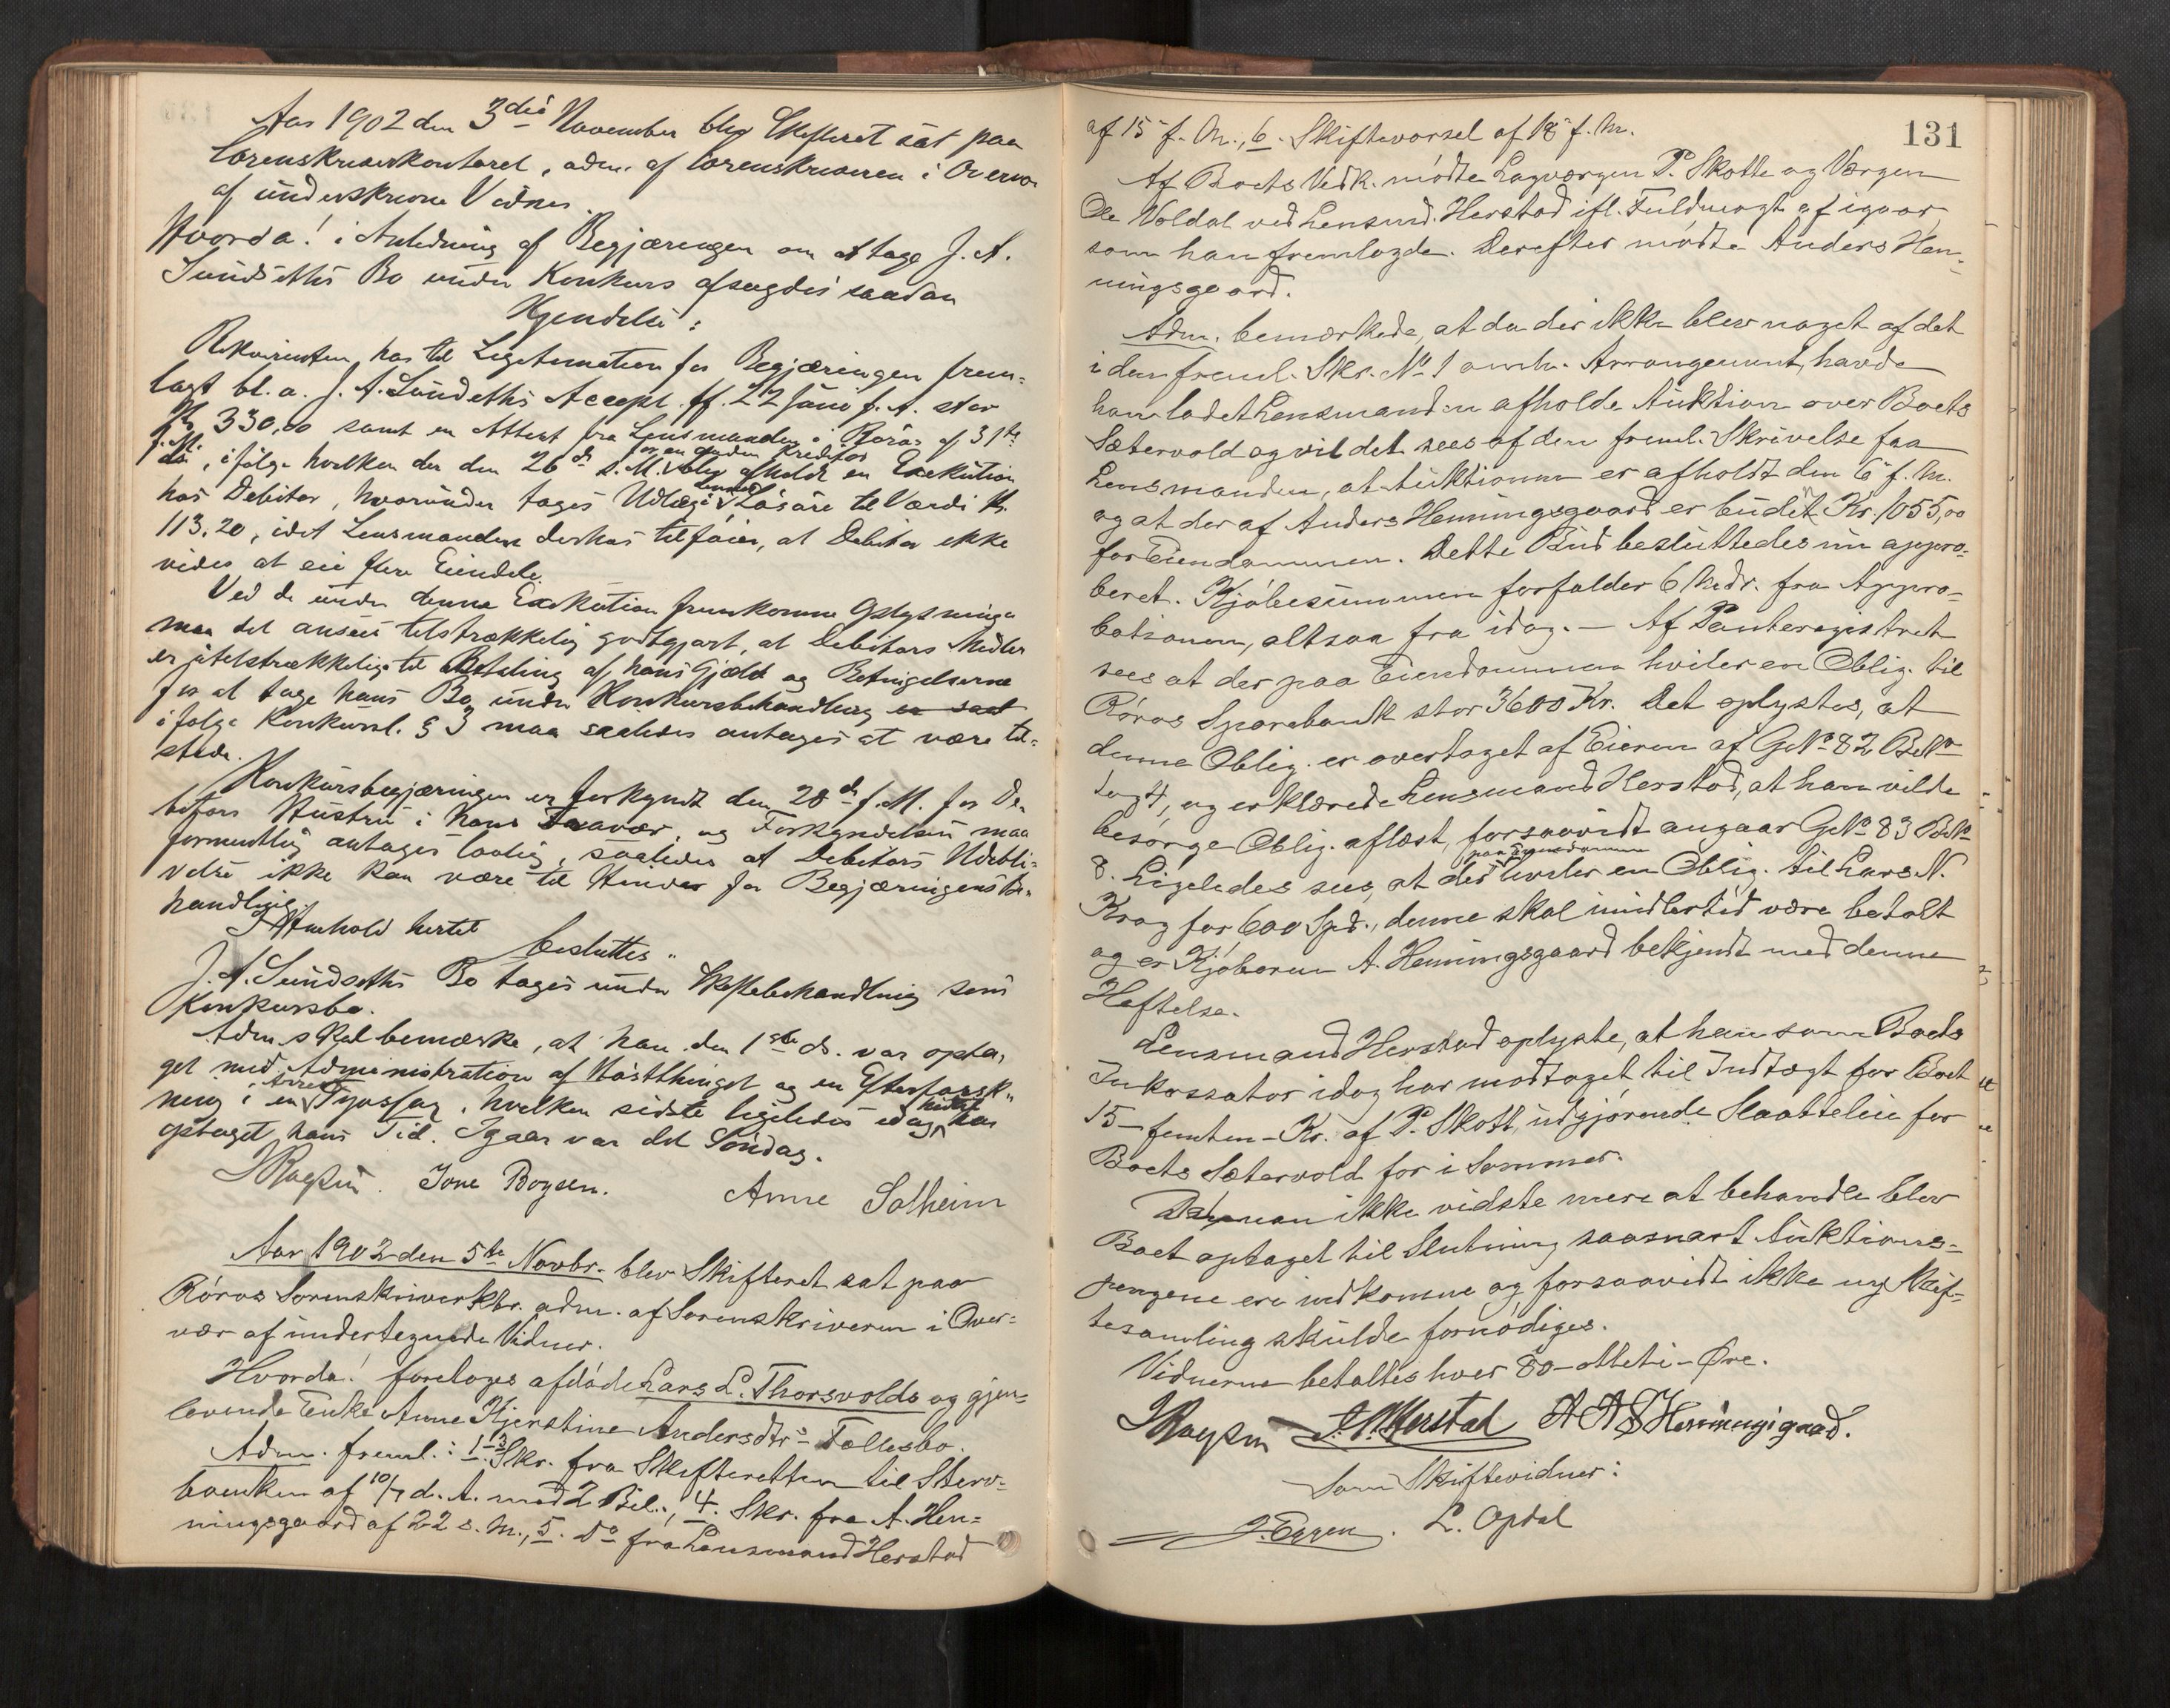 Aar 1902 den 3die November blev Skifteret sat paa
Sorenskriverkontoret, adm. af Sorenskriveren i Overvær
af underskrevne Vidner.
Hvorda! i Anledning af Begjæringen om at tage J. A.
Sundseths Bo under Konkurs afsagdes saadan
Kjendelse:
Rekvirenten har til Legitimation for Begjæringen frem-
lagt bl. a. J. A. Sundseths Accept ff. 22 Juni f. A. stor
Kr. 330,00 samt en Attest fra Lensmanden i Røros af 31te
f. M., ifølge hvilken der den 26de s. M. for en anden Kreditor blev afholdt en Exekution
hos Debitor, hvorunder toges Udlæg i Løsøre til Værdi Kr.
113.20, idet Lensmanden derhos tilføier, at Debitor ikke
vides at eie flere Eiendele.
Ved de under denne Exekution fremkomne Oplysninger
maa det ansees tilstrækkelig godtgjort, at Debitors Midler
er utilstrækkelige til Betaling af hans Gjæld og Betingelserne
for at tage hans Bo under Konkursbehandling er saal
ifølge Konkursl. § 3 maa saaledes antages at være til-
stede.
Konkursbegjæringen er forkyndt den 28de f. M. for De-
bitors Hustru i hans Fravær, og Forkyndelsen maa
formentlig antages lovlig, saaledes at Debitors Udebli-
velse ikke kan være til Hinder for Begjæringens Be-
handling.
I Henhold hertil
besluttes:
J. A. Sundseths Bo tages under Skiftebehandling som
Konkursbo.
Adm. skal bemærke, at han den 1ste ds. var opta-
get med Administration af Høstthinget og en Efterforsk-
ning i en Arrest Tyvssag, hvilken sidste ligeledes idag hidtil har
optaget hans Tid. Igaar var det Søndag.
Jone Boysen. Anne Solheim
Aar 1902 den 5te Novbr. blev Skifteret sat paa
Røros Sorenskriverktr. adm. af Sorenskriveren i Over-
vær af undertegnede Vidner.
Hvorda! foretoges afdøde Lars L. Thorsvolds og gjen-
levende Enke Anne Kjerstine Andersdtrs Fællesbo.
Adm. freml.: 1-3 Skr. fra Skifteretten til Sterv-
boenken af 10/7 d. A. med 2 Bil., 4. Skr. fra A. Hen-
ningsgaard af 22 s. M., 5. Do fra Lensmand Herstad
131
af 15 f. M., 6. Skiftevarsel af 18 f. M.
Af Boets Vedk. mødte Lagværgen P. Skotte og Værgen
Ole Voldal ved Lensmd. Herstad ifl. Fuldmagt af igaar,
som han fremlagde. Derefter mødte Anders Hen-
ningsgaard.
Adm. bemærkede, at da der ikke blev noget af det
i den freml. Skr. No 1 omh. Arrangement, havde
han ladet Lensmanden afholde Auktion over Boets
Sætervold og vil det sees af den freml. Skrivelse fra
Lensmanden, at Auktionen er afholdt den 6 f. M.
og at der af Anders Henningsgaard er budet Kr. 1055,00
for Eiendommen. Dette Bud besluttedes nu appro-
beret. Kjøbesummen forfalder 6 Mdr. fra Appro-
bationen, altsaa fra idag. — Af Panteregistret
sees at der paa Eiendommen hviler en Oblig. til
Røros Sparebank stor 3600 Kr. Det oplystes, at
denne Oblig. er overtaget af Eieren af GNo 82 BNo
1 og 4, og erklærede Lensmand Herstad, at han vilde
besørge Oblig. aflæst, forsaavidt angaar GNo 83 BNo
8. Ligeledes sees, at der paa Eiendommen hviler en Oblig. til Lars N.
Krog for 600 Spd., denne skal imidlertid være betalt
og er Kjøberen A. Henningsgaard bekjendt med denne
Heftelse.
Lensmand Herstad oplyste, at han som Boets
Inkassator idag har modtaget til Indtægt for Boet
15 - femten - Kr. af P. Skott, udgjørende Slaatteleie for
Boets Sætervold for i Sommer.
Da man ikke vidste mere at behandle blev
Boet optaget til Slutning saasnart Auktions-
pengene ere indkomne og forsaavidt ikke ny Skif-
tesamling skulde fornødiges.
Vidnerne betaltes hver 80 - otteti - Øre.
Herstad A A Henningsgaard.
Som Skiftevidner:
J. Eggen. L. Opdal